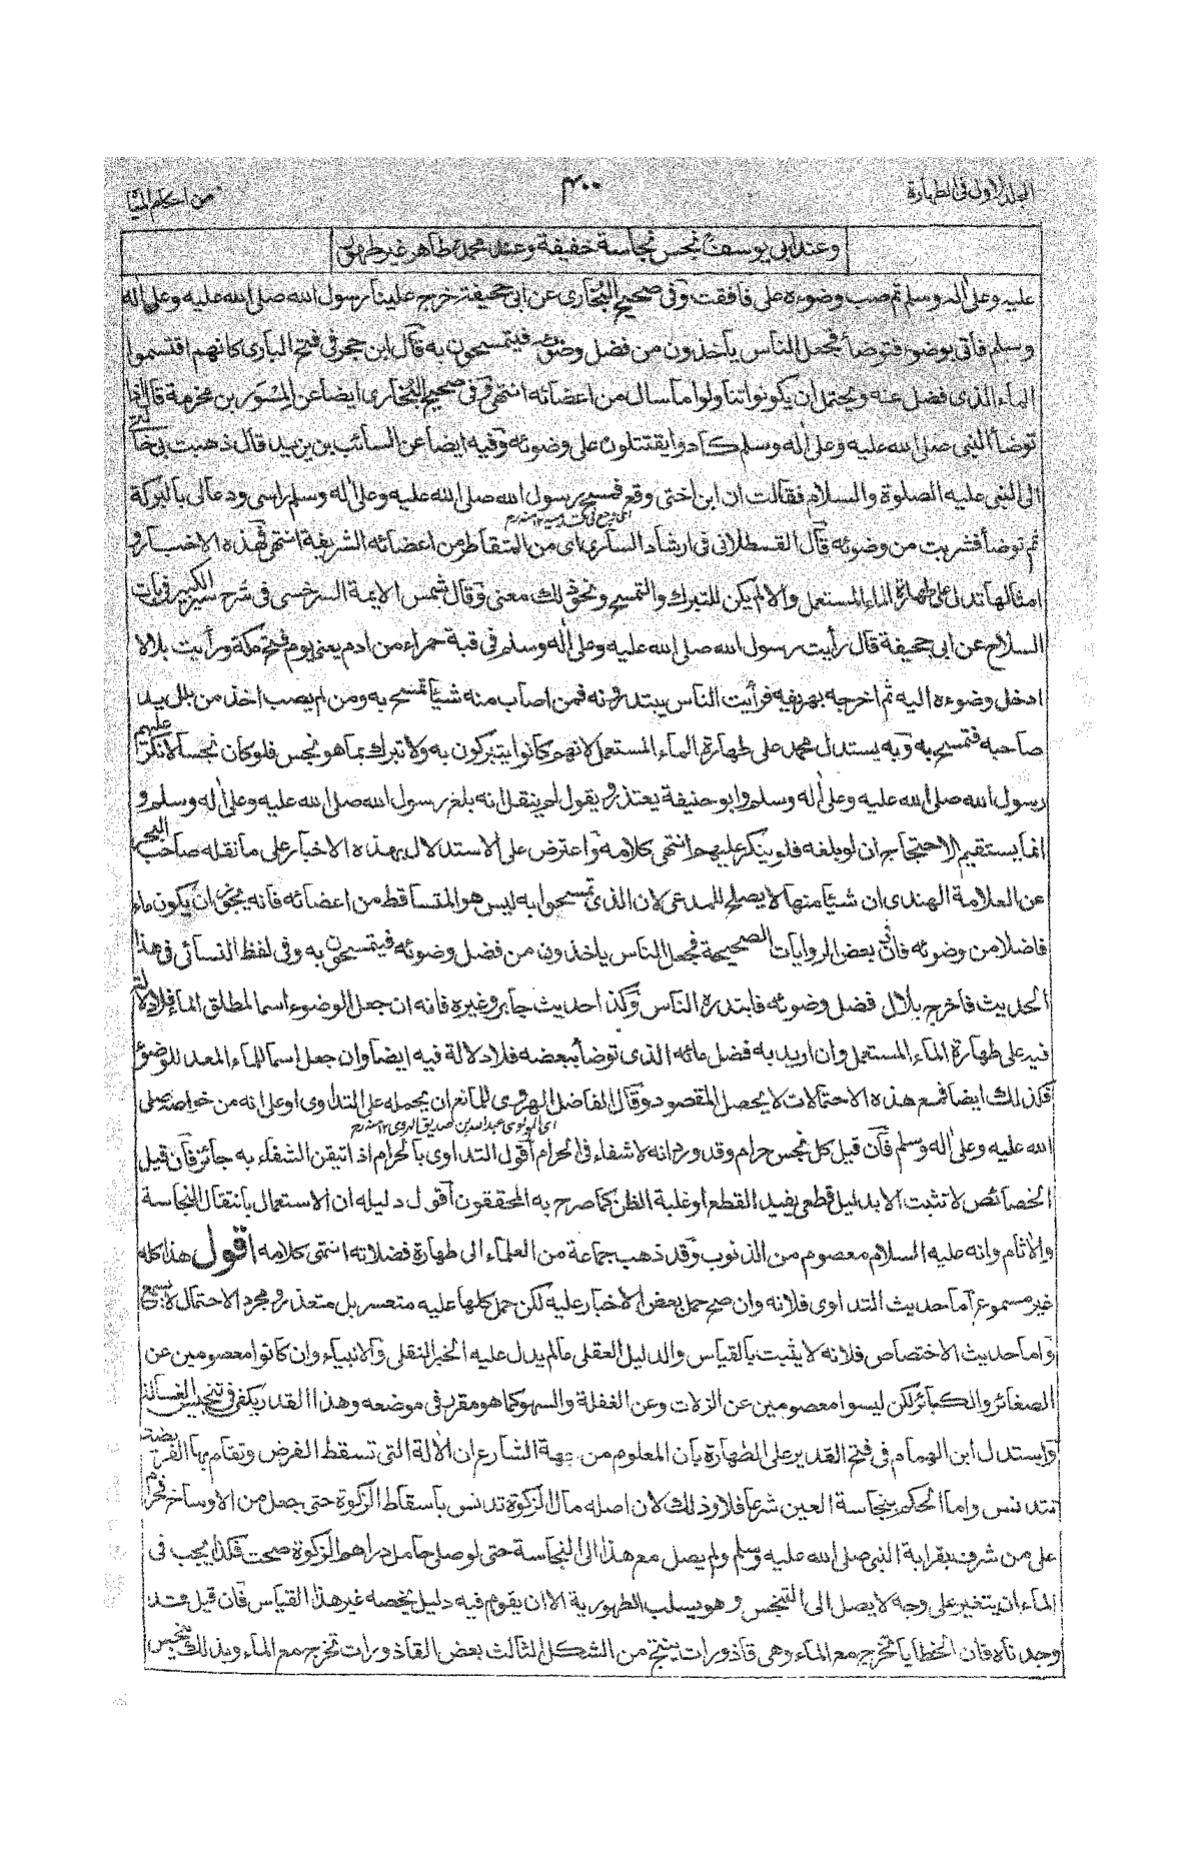 الجلد الاول فى الطهارة
٤٠٠
من احكام المياه
وعند ابى يوسف نجس نجاسة خفيفة وعند محمد طاهر غير طهور
عليه وعلى اله وسلم ثم صب وضوءه على فافقت وفى صحيح البخارى عن ابى جحيفة خرج علينا رسول الله صلى الله عليه وعلى اله
وسلم فاتى بوضوء فتوضأ فجعل الناس ياخذون من فضل وضوئه فيتمسحون به قال ابن حجر فى فتح البارى كانهم اقتسموا
الماء الذى فضل عنه ويحتمل ان يكونوا تناولوا ما سال من اعضائه انتهى وفى صحيح البخارى ايضا عن المسور بن مخرمة قال اذا
توضأ النبى صلى الله عليه وعلى اله وسلم كادوا يقتتلون على وضوئه وفيه ايضا عن السائب بن يزيد قال ذهبت بى خالتى
الى النبى عليه الصلوة والسلام فقالت ان ابن اختى وقع فمسح رسول الله صلى الله عليه وعلى اله وسلم راسى ودعا لى بالبركة
ثم توضأ فشربت من وضوئه قال القسطلانى فى ارشاد السارى اى من المتقاطر من اعضائه الشريفة انتهى فهذه الاخبار و
امثالها تدل على طهارة الماء المستعمل والا لم يكن للتبرك والتمسح ونحو ذلك معنى وقال شمس الايمة السرخسى فى شرح سير الكبير فى باب
السلاح عن ابى جحيفة قال رأيت رسول الله صلى الله عليه وعلى اله وسلم فى قبة حمراء من ادم يعنى يوم فتح مكة ورأيت بلالا
ادخل وضوءه اليه ثم اخرجه يهريقه فرأيت الناس يبتدرونه فمن اصاب منه شيئا تمسح به ومن لم يصب اخذ من بلل يد
صاحبه فتمسح به وبه يستدل محمد على طهارة الماء المستعمل لانهم كانوا يتبركون به ولا تبرك بما هو نجس فلو كان نجسا لانكر عليهم
رسول الله صلى الله عليه وعلى اله وسلم وابو حنيفة يعتذر ويقول لم ينقل انه بلغ رسول الله صلى الله عليه وعلى اله وسلم و
انما يستقيم الاحتجاج ان لو بلغه فلو ينكر عليهم انتهى كلامه واعترض على الاستدلال بهذه الاخبار على ما نقله صاحب البحر
عن العلامة الهندى ان شيئا منها لا يصلح للمدعى لان الذى تمسحوا به ليس هو المتساقط من اعضائه فانه يجوز ان يكون ماء
فاضلا من وضوئه فان فى بعض الروايات الصحيحة فجعل الناس ياخذون من فضل وضوئه فيتمسحون به وفى لفظ النسائى فى هذا
الحديث فاخرج بلال فضل وضوئه فابتدره الناس وكذا حديث جابر وغيره فانه ان جعل الوضوء اسما لمطلق الماء فلا دلالة
فيه على طهارة الماء المستعمل وان اريد به فضل مائه الذى توضأ ببعضه فلا دلالة فيه ايضا وان جعل اسما للماء المعد للوضوء
فكذلك ايضا فمع هذه الاحتمالات لا يحصل المقصود وقال الفاضل الهروى للمانع ان يحمله على التداوى او على انه من خواصه صلى
الله عليه وعلى اله وسلم فان قيل كل نجس حرام وقد ورد انه لا شفاء فى الحرام اقول التداوى بالحرام اذا تيقن الشفاء به جائز فان قيل
الخصائص لا تثبت الا بدليل قطعى يفيد القطع او غلبة الظن كما صرح به المحققون اقول دليله ان الاستعمال بانتقال النجاسة
والاثام وانه عليه السلام معصوم من الذنوب وقد ذهب جماعة من العلماء الى طهارة فضلاته انتهى كلامه اقول هذا كله
غير مسموع اما حديث التداوى فلانه وان صح حمل بعض الاخبار عليه لكن حمل كلها عليه متعسر بل متعذر ومجرد الاحتمال لا يسمع
واما حديث الاختصاص فلانه لا يثبت بالقياس والدليل العقلى ما لم يدل عليه الخبر النقلى والانبياء وان كانوا معصومين عن
الصغائر والكبائر لكن ليسوا معصومين عن الزلات وعن الغفلة والسهو كما هو مقرر فى موضعه وهذا القدر يكفى فى تنجيس الغسالة
واستدل ابن الهمام فى فتح القدير على الطهارة بان المعلوم من جهة الشارع ان الالة التى تسقط الفرض وتقام بها القربة
تتدنس واما الحكم بنجاسة العين شرعا فلا وذلك لان اصله مال الزكوة تدنس باسقاط الزكوة حتى جعل من الاوساخ فحرم
على من شرف بقرابة النبى صلى الله عليه وسلم ولم يصل مع هذا الى النجاسة حتى لو صلى حامل دراهم الزكوة صحت فكذا يجب فى
الماء ان يتغير على وجه لا يصل الى التنجس وهو يسلب الطهورية الا ان يقوم فيه دليل يخصه غير هذا القياس فان قيل قد
وجدناه فان الخطايا تخرج مع الماء وهى قاذورات ينتج من الشكل الثالث بعض القاذورات تخرج مع الماء وبذلك تنجيس